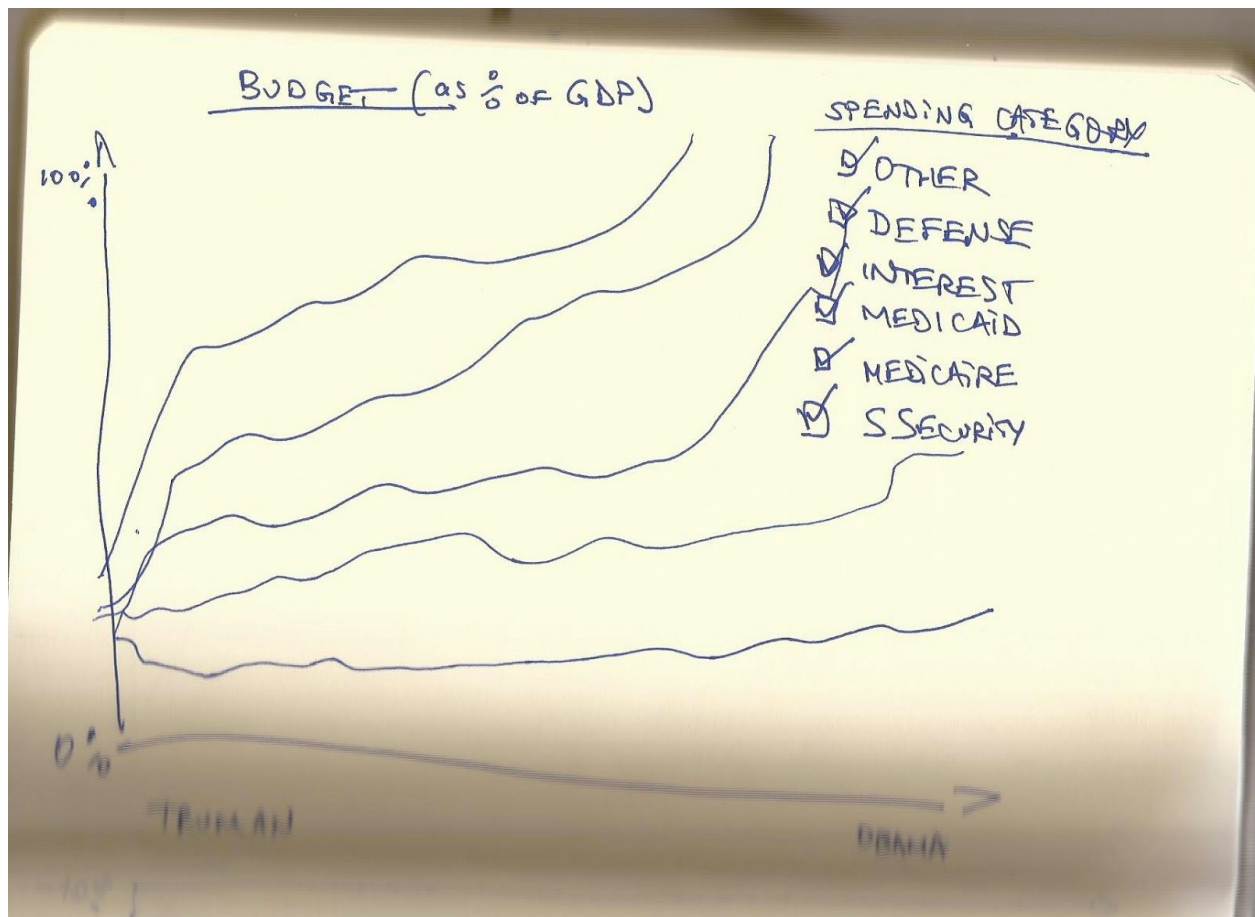 BUDGET (as % OF GDP)
SPENDING CATEGORY
100%
OTHER
DEFENSE
INTEREST
MEDICAID
MEDICAIRE
S SECURITY
0%
TRUMAN
OBAMA